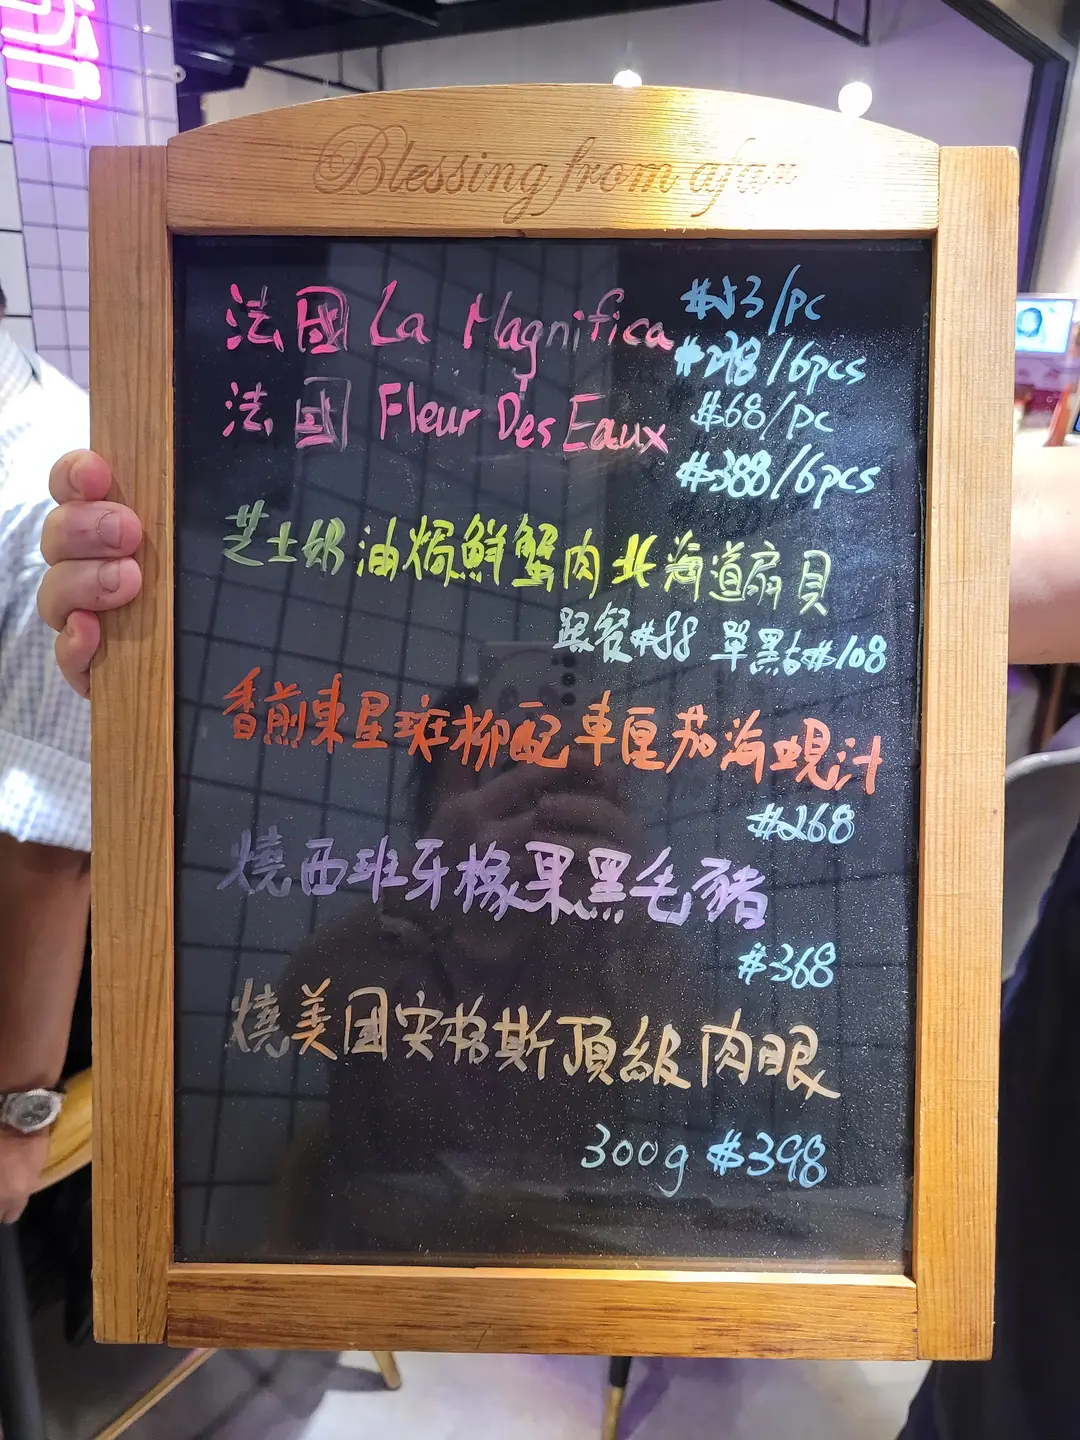 Blessing from afar
法國 La Magnifica #53/pc
#298/6pcs
法國 Fleur Des Eaux #68/pc
#388/6pcs
芝士奶油焗鮮蟹肉北海道扇貝
跟餐#88 單點#108
香煎東星斑柳配車厘茄海蜆汁
#268
燒西班牙橡果黑毛豬
#368
燒美国安格斯頂級肉眼
300g #398